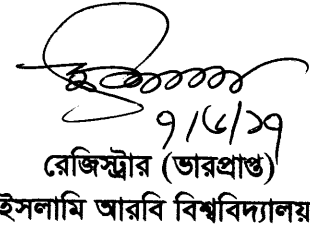 ৭/৬/১৭
রেজিস্ট্রার (ভারপ্রাপ্ত)
ইসলামি আরবি বিশ্ববিদ্যালয়